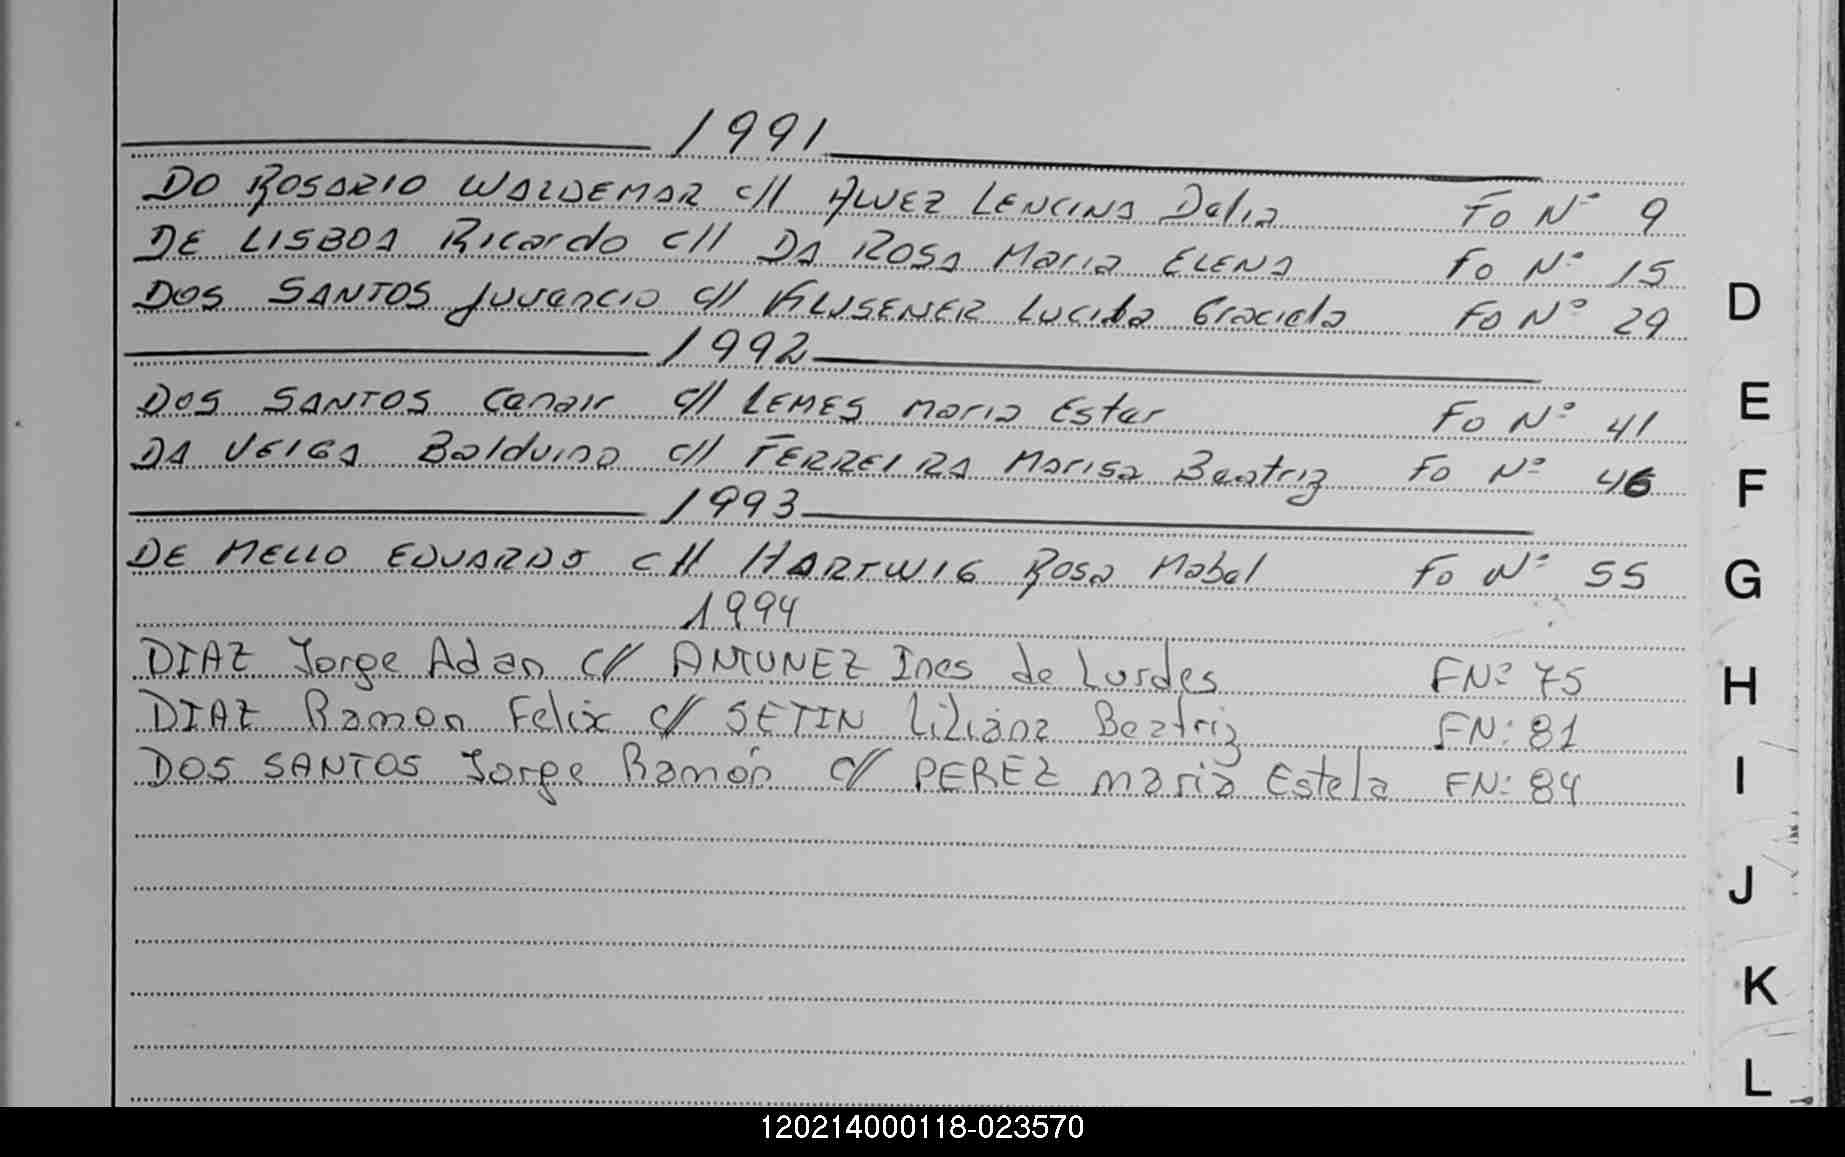 1991
DO ROSARIO WALDEMAR c// ALVEZ LENCINA Delia Fo Nº 9
DE LISBOA Ricardo c// DA ROSA Maria ELENA Fo Nº 15
DOS SANTOS Juvencio c// KLUSENER Lucila Graciela Fo Nº 29
1992
DOS SANTOS Canair c// LEMES Maria Ester Fo Nº 41
DA VEIGA Balduino c// FERREIRA Marisa Beatriz Fo Nº 46
1993
DE MELLO EDUARDO c// HARTWIG Rosa Mabel Fo Nº 55
1994
DIAZ Jorge Adan c// ANTUNEZ Ines de Lurdes FNº 75
DIAZ Ramon Felix c// SETIN Liliana Beatriz FNº 81
DOS SANTOS Jorge Ramón c// PEREZ Maria Estela FNº 84
D
E
F
G
H
I
J
K
L
120214000118-023570